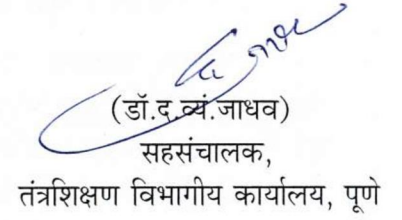 (डॉ.द.व्यं.जाधव)
सहसंचालक,
तंत्रशिक्षण विभागीय कार्यालय, पूणे